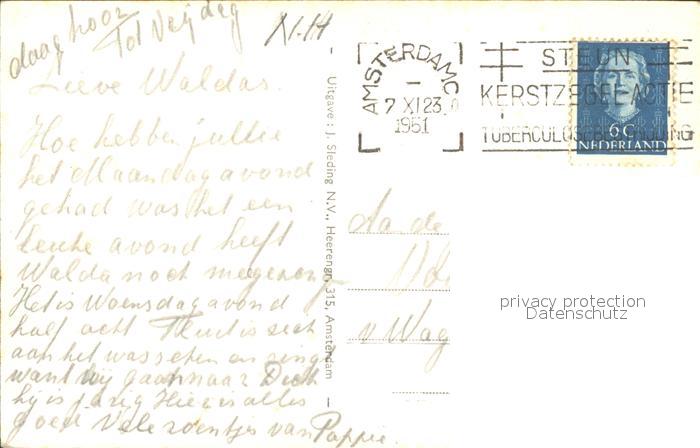 daag hoor
Tot Vrijdag
XI.14
Lieve Waldas.
Hoe hebben jullie
het Maandagavond
gehad was het een
leuke avond heeft
Walda noch meegezong
Het is Woensdagavond
half acht
aan het wassen en zing
want wij gaan naar
hij is jarig Hier is alles
goed Vele zoentjes van Pappie.
Uitgave: J. Sleding N.V., Heerengr. 315, Amsterdam
AMSTERDAM C
7 XI 23
1951
STEUN
KERSTZEGELACTIE
TUBERCULOSEBESTRIJDING
6 C
NEDERLAND
Aan de
v Wag
privacy protection
Datenschutz